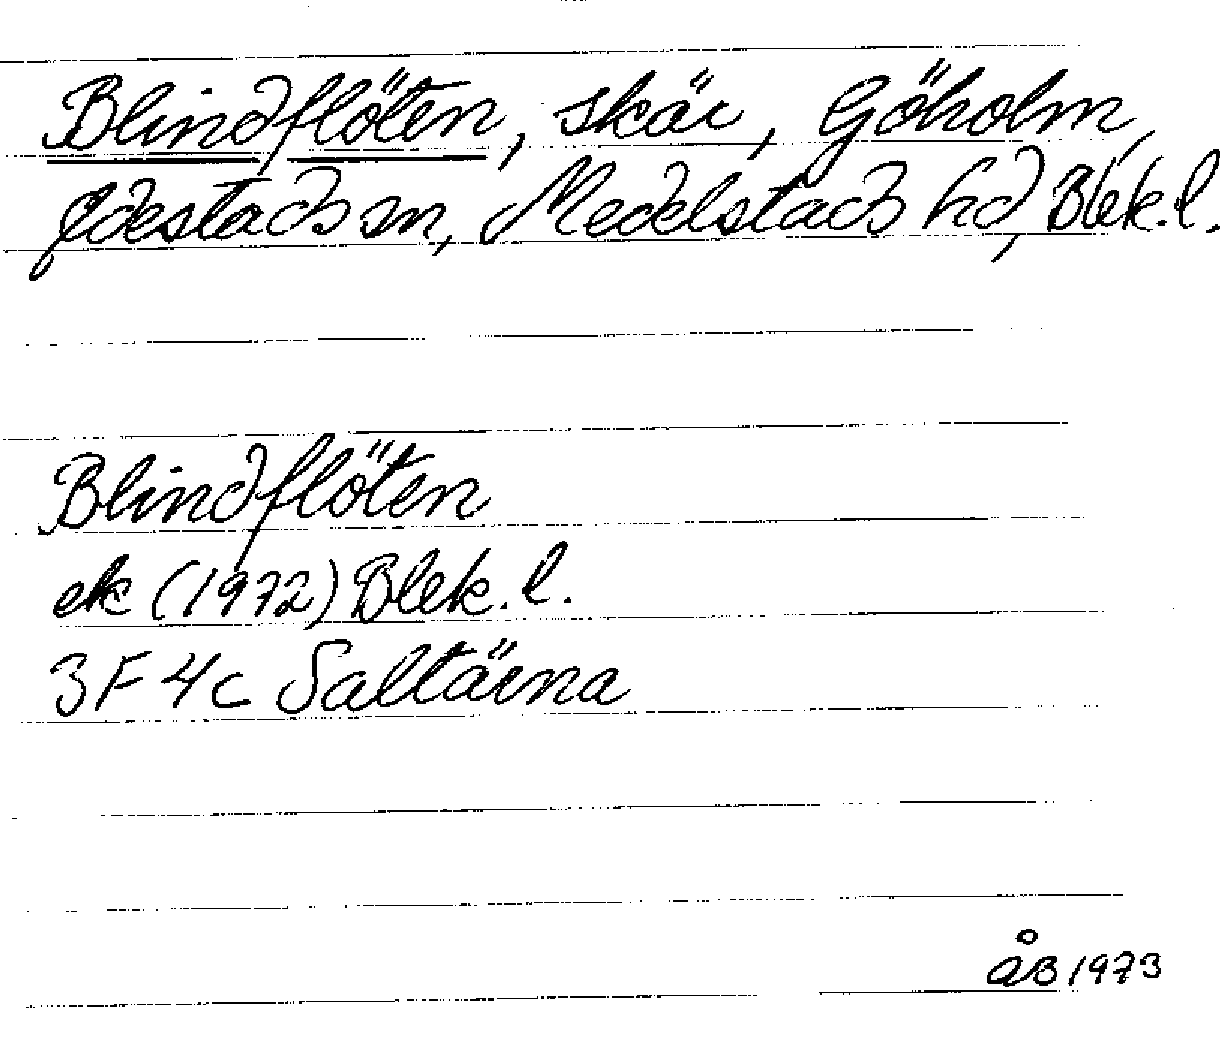 Blindflöten, skär, Göholm,
Edestads sn, Medelstads hd, Blek.l.
Blindflöten
ek (1972) Blek.l.
3F 4c Saltärna
ÅB 1973